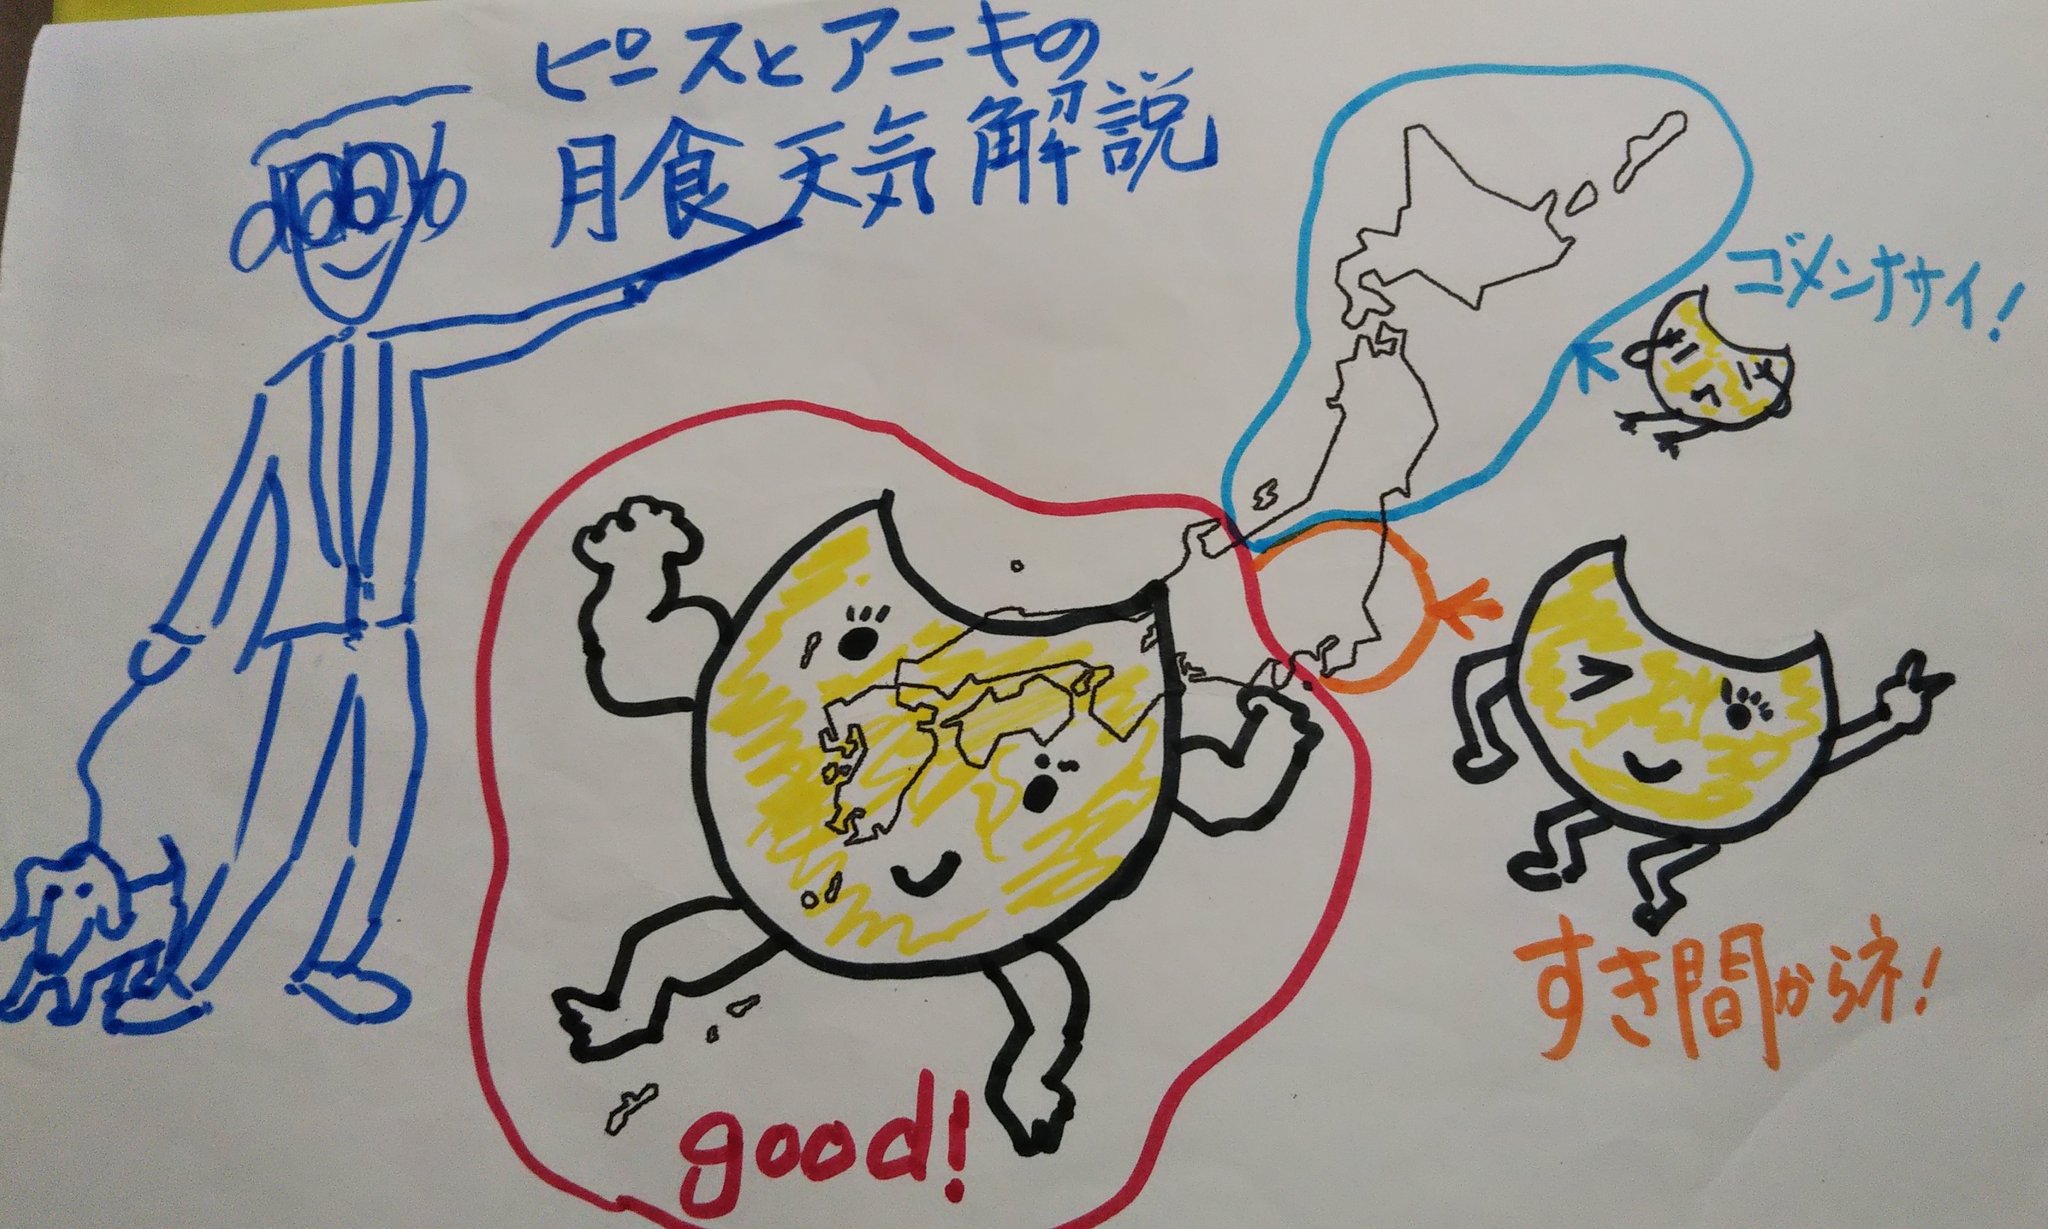 ピニスとアニキの
月食天気解説
ゴメンナサイ!
すき間からネ!
good!